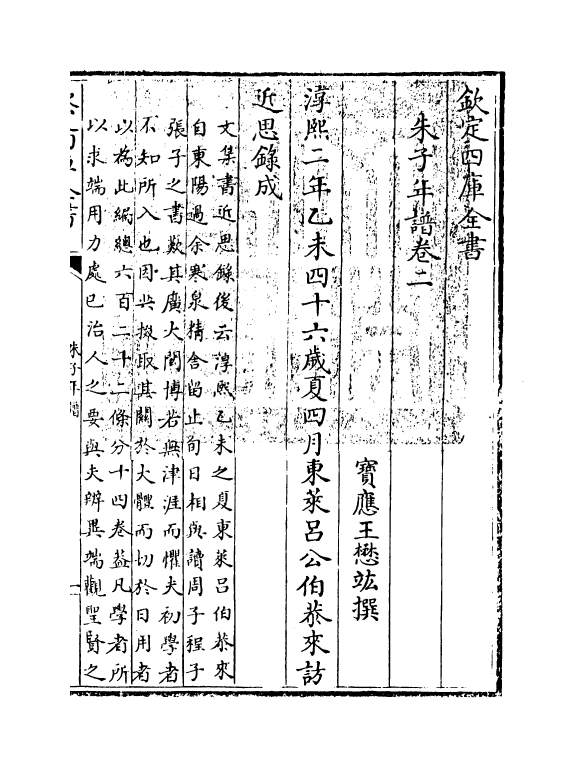 欽定四庫全書
朱子年譜卷二
寶應王懋竑撰
淳熙二年乙未四十六歲夏四月東萊呂公伯恭來訪
近思錄成
文集書近思錄後云淳熙乙未之夏東萊呂伯恭來
自東陽過余寒泉精舍留止旬日相與讀周子程子
張子之書歎其廣大閎博若無津涯而懼夫初學者
不知所入也因共掇取其關於大體而切於日用者
以為此編總六百二十二條分十四卷蓋凡學者所
以求端用力處已治人之要與夫辨異端觀聖賢之
朱子年譜
一